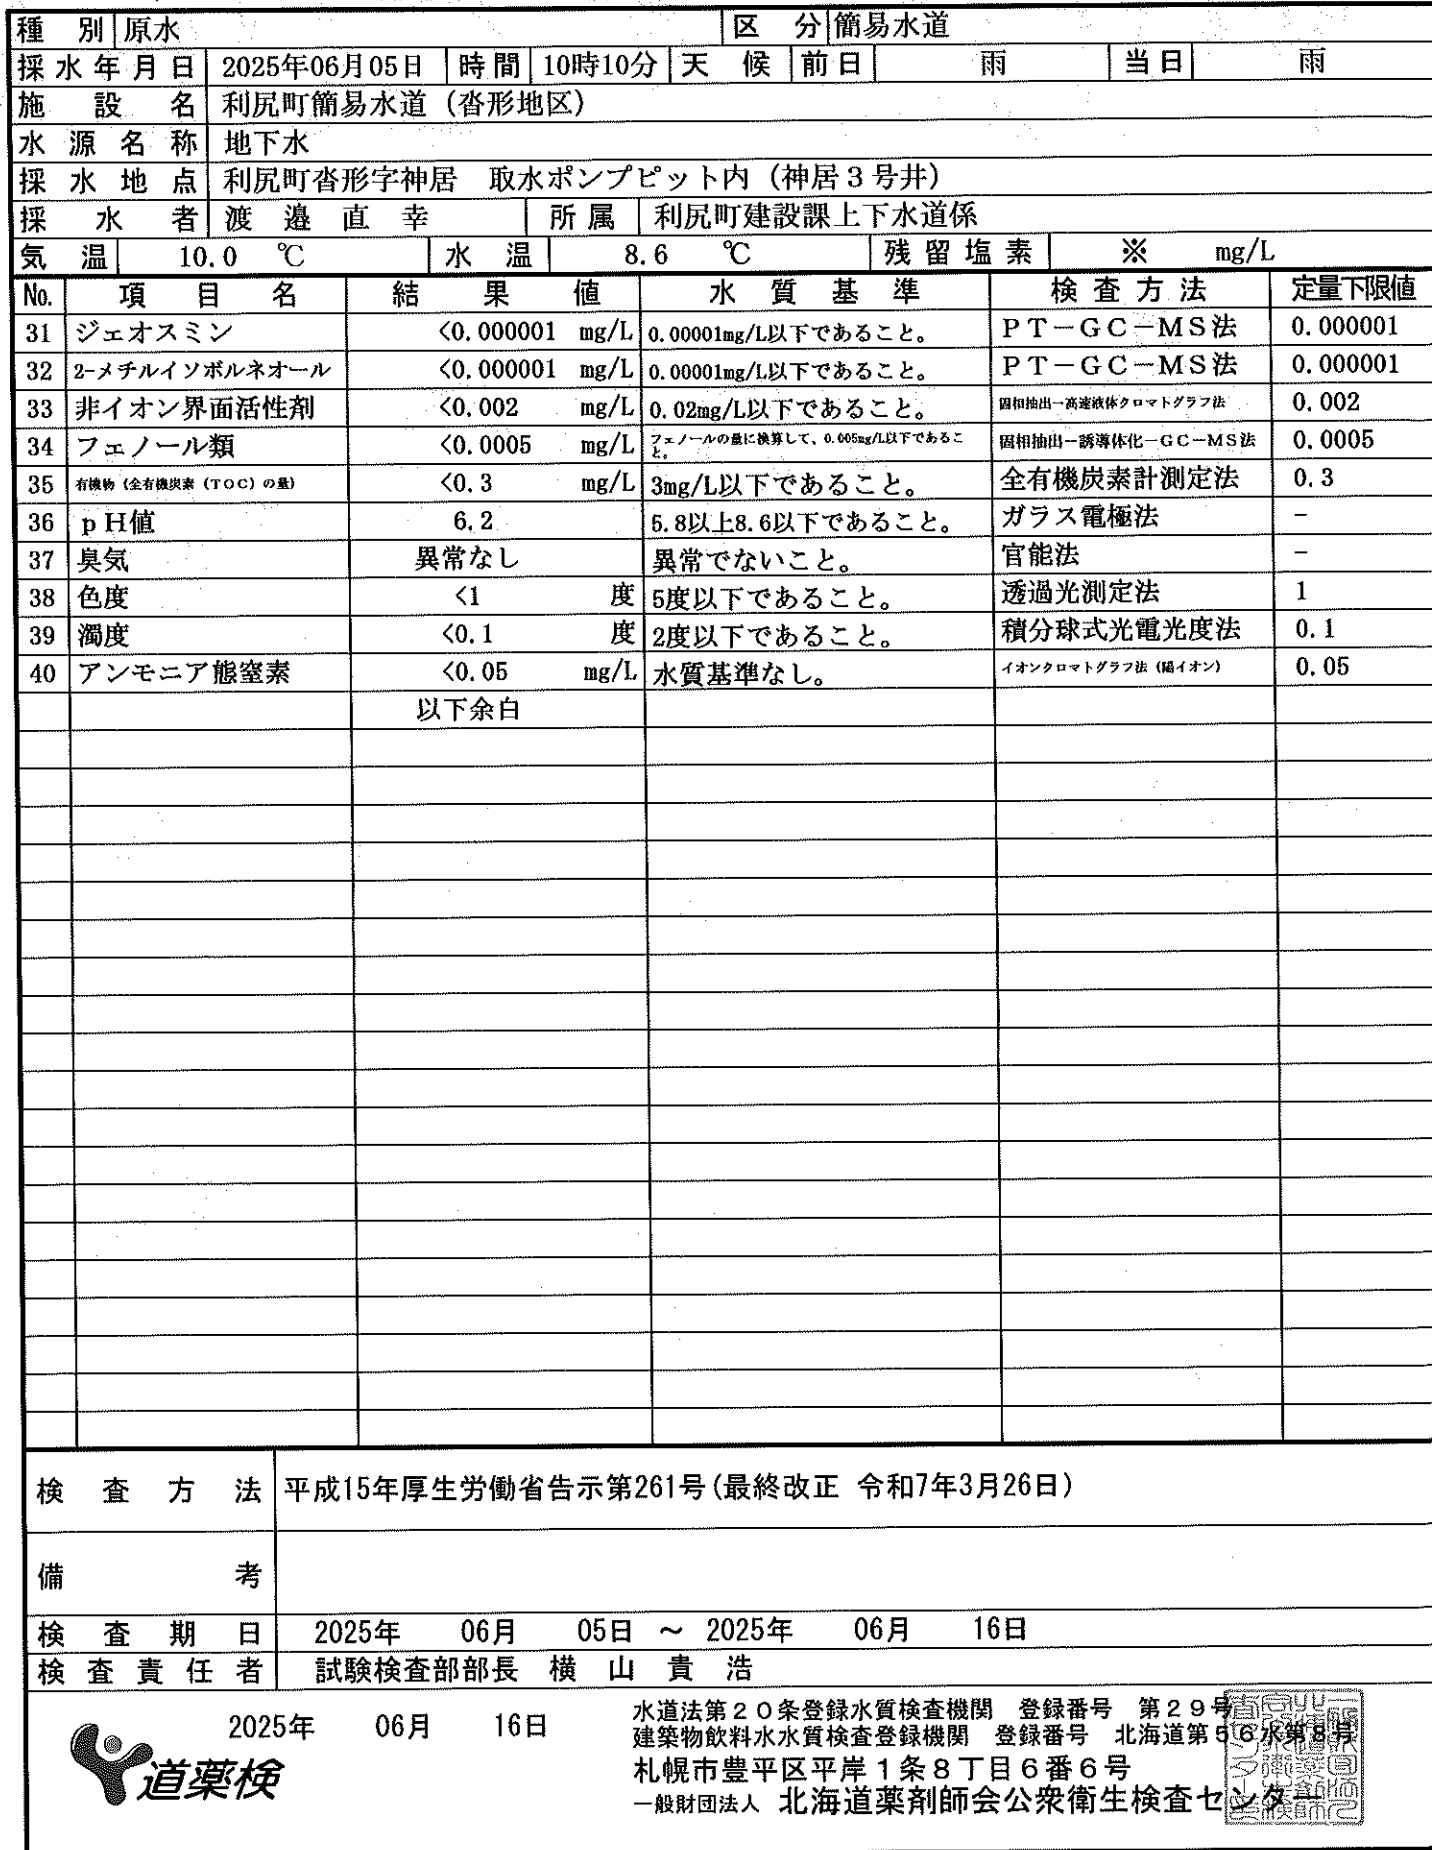 種別 原水 区分 簡易水道
採水年月日 2025年06月05日 時間 10時10分 天候 前日 雨 当日 雨
施設名 利尻町簡易水道（沓形地区）
水源名称 地下水
採水地点 利尻町沓形字神居 取水ポンプピット内（神居３号井）
採水者 渡邉直幸 所属 利尻町建設課上下水道係
気温 10.0 ℃ 水温 8.6 ℃ 残留塩素 ※ mg/L
No. 項目名 結果値 水質基準 検査方法 定量下限値
31 ジェオスミン <0.000001 mg/L 0.00001mg/L以下であること。 ＰＴ－ＧＣ－ＭＳ法 0.000001
32 2-メチルイソボルネオール <0.000001 mg/L 0.00001mg/L以下であること。 ＰＴ－ＧＣ－ＭＳ法 0.000001
33 非イオン界面活性剤 <0.002 mg/L 0.02mg/L以下であること。 固相抽出－高速液体クロマトグラフ法 0.002
34 フェノール類 <0.0005 mg/L フェノールの量に換算して、0.005mg/L以下であること。 固相抽出－誘導体化－ＧＣ－ＭＳ法 0.0005
35 有機物（全有機炭素（ＴＯＣ）の量） <0.3 mg/L 3mg/L以下であること。 全有機炭素計測定法 0.3
36 ｐＨ値 6.2 5.8以上8.6以下であること。 ガラス電極法 －
37 臭気 異常なし 異常でないこと。 官能法 －
38 色度 <1 度 5度以下であること。 透過光測定法 1
39 濁度 <0.1 度 2度以下であること。 積分球式光電光度法 0.1
40 アンモニア態窒素 <0.05 mg/L 水質基準なし。 イオンクロマトグラフ法（陽イオン） 0.05
以下余白
検査方法 平成15年厚生労働省告示第261号(最終改正 令和7年3月26日)
備考
検査期日 2025年 06月 05日 ～ 2025年 06月 16日
検査責任者 試験検査部部長 横山貴浩
2025年 06月 16日
道薬検
水道法第２０条登録水質検査機関 登録番号 第２９号
建築物飲料水水質検査登録機関 登録番号 北海道第５６水第８号
札幌市豊平区平岸１条８丁目６番６号
一般財団法人 北海道薬剤師会公衆衛生検査センター